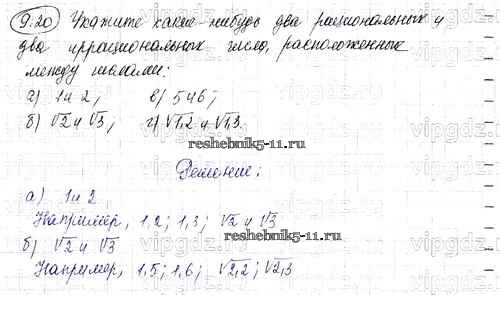 9.20 Укажите какие-нибудь два рациональных и
два иррациональных числа, расположенных
между числами:
а) 1 и 2; в) 5 и 6;
б) √2 и √3; г) √1,2 и √1,3.
reshebnik5-11.ru
Решение:
а) 1 и 2
Например, 1,2; 1,3; √2 и √3
б) √2 и √3
Например, 1,5; 1,6; √2,2; √2,3
reshebnik5-11.ru
vipgdz.
vipgdz.
vipgdz.
vipgdz.